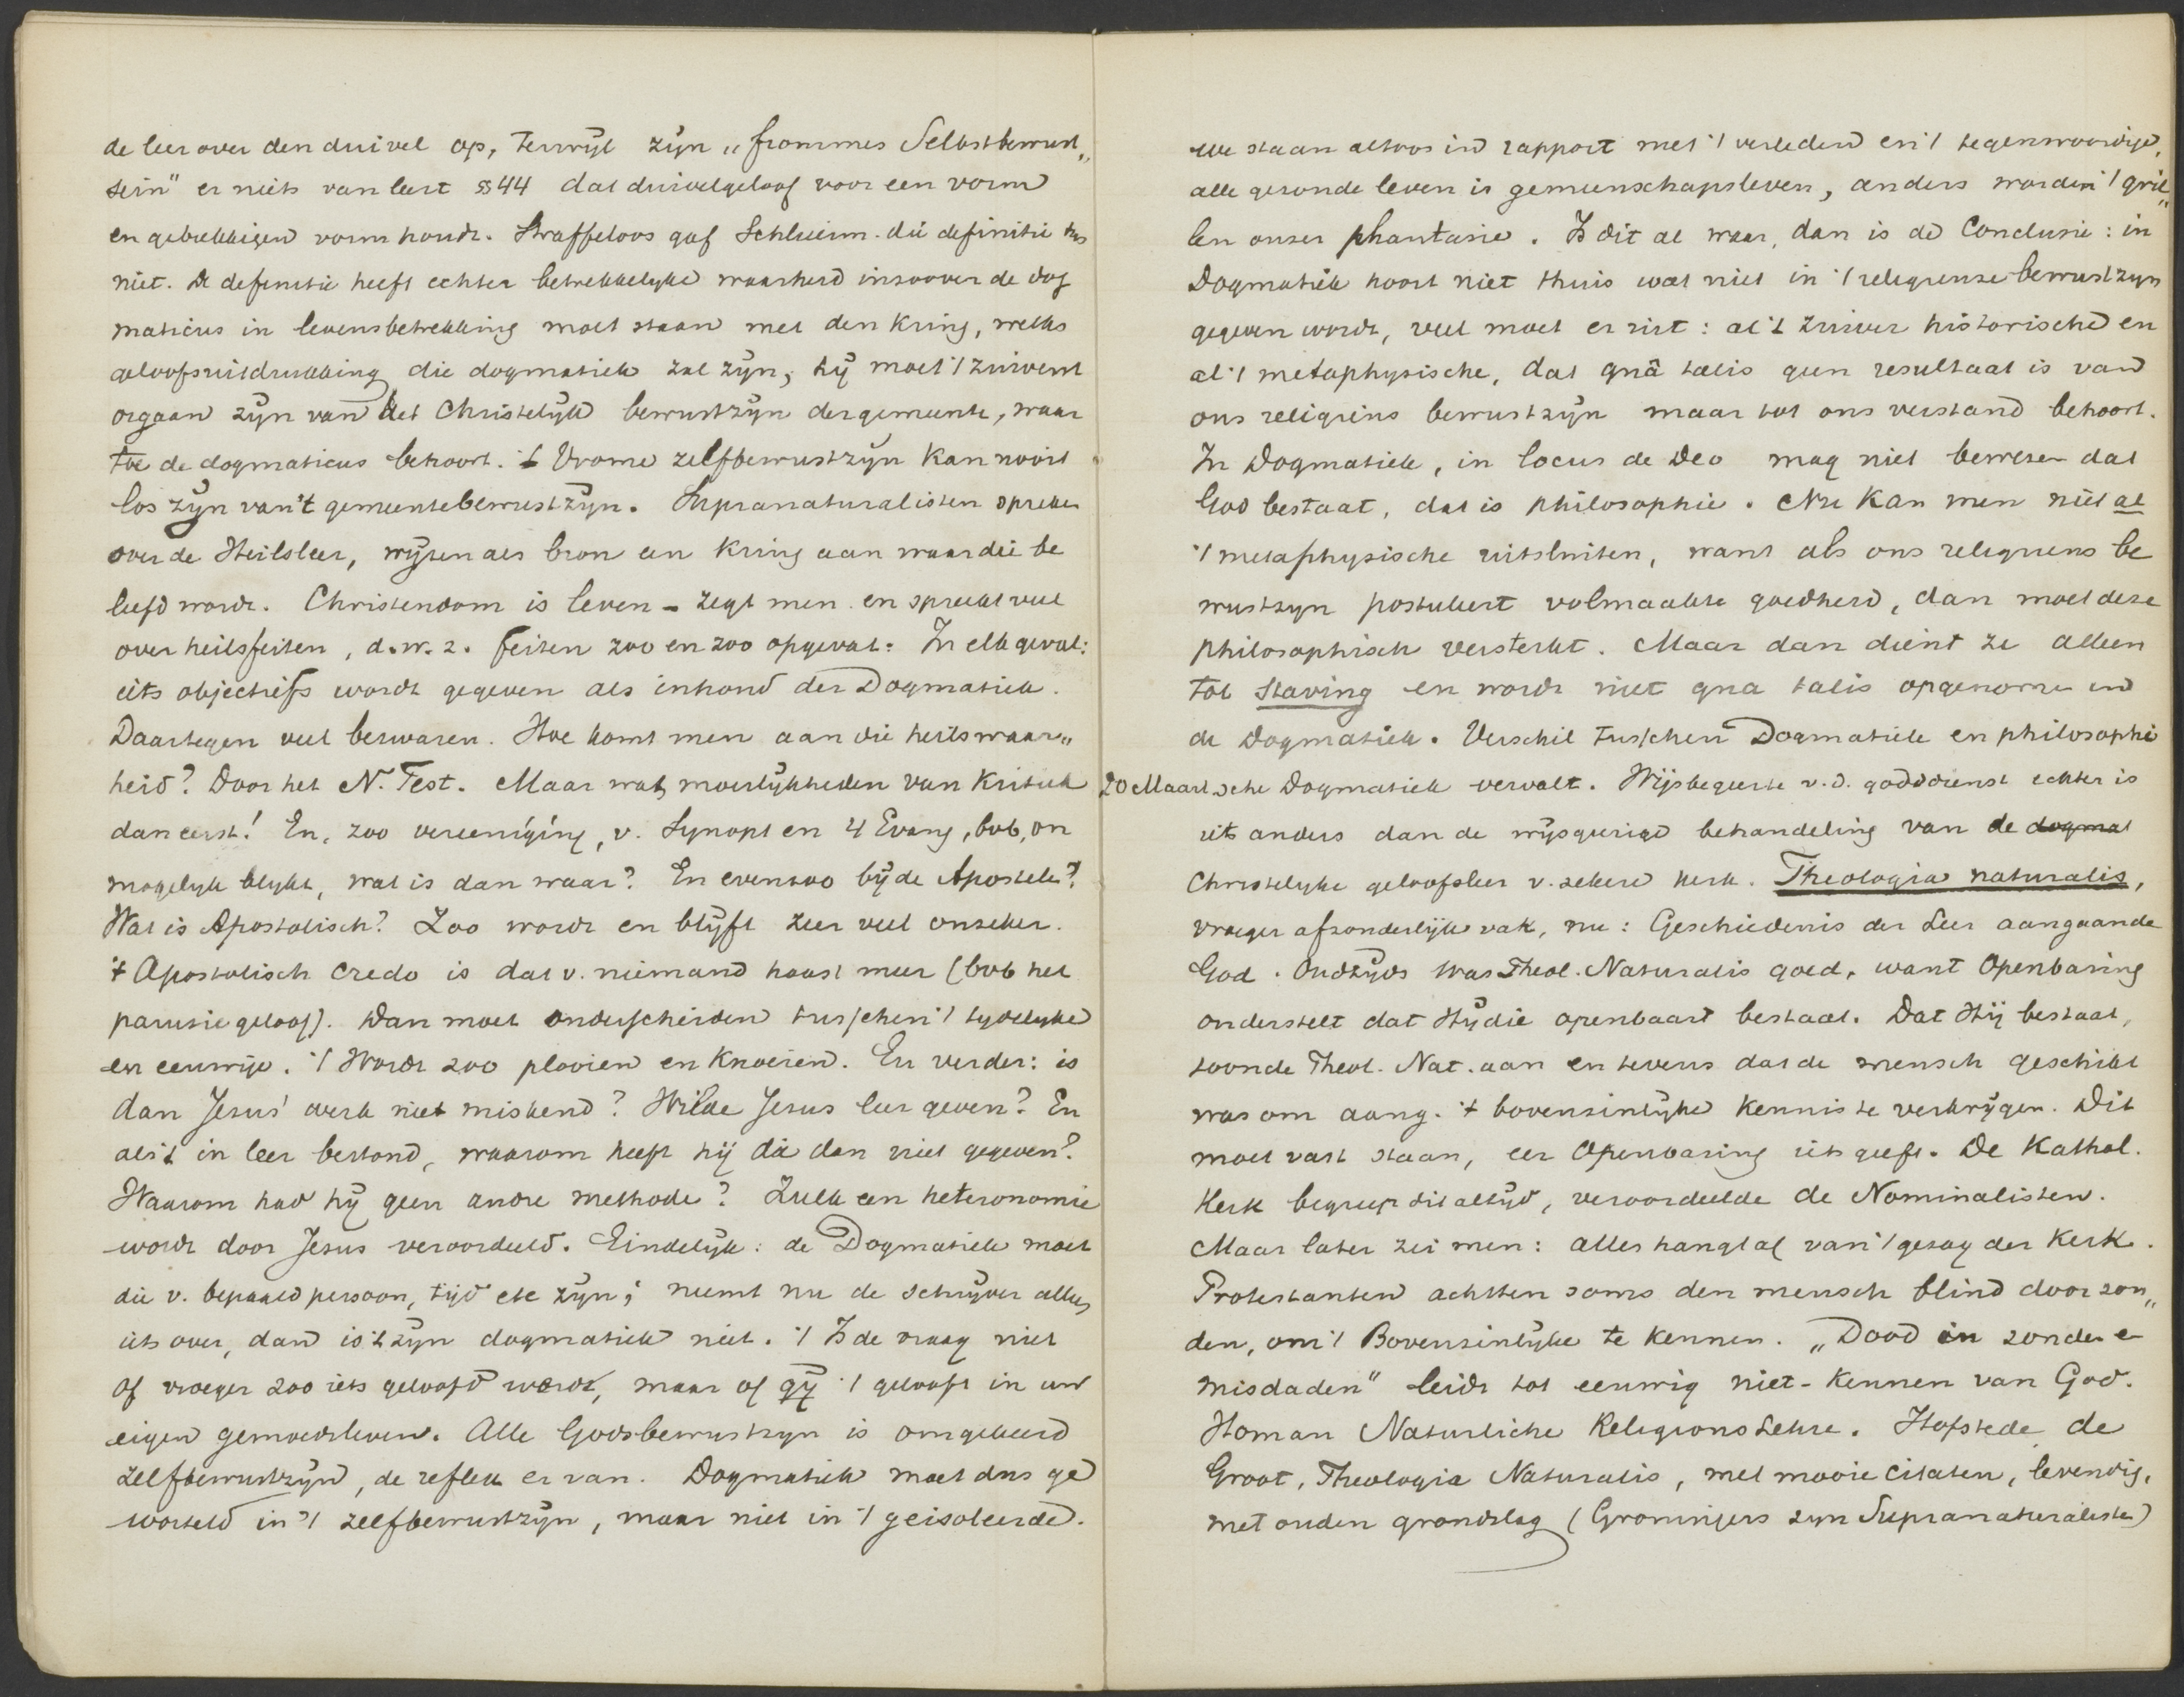 de leer over den duivel op, terwijl zijn „frommes Selbstbewust„
sein" er niets van leert §§44 dat duivelgeloof voor een vorm
en gebrekkigen vorm houdt. Straffeloos gaf Schleierm. die definitie dus
niet. De definitie heeft echter betrekkelijke waarheid inzoover de dog
maticus in levensbetrekking moet staan met den kring, welks
geloofsuitdrukking die dogmatiek zal zijn; hij moet 't zuiverst
orgaan zijn van het Christelijk bewustzijn der gemeente, waar
toe de dogmaticus behoort. 't Vrome zelfbewustzijn kan nooit
los zijn van 't gemeentebewustzijn. Supranaturalisten spreken
over de Heilsleer, wijzen als bron een kring aan waar die be
leefd wordt. Christendom is leven – zegt men en spreekt veel
over heilsfeiten, d.w.z. feiten zoo en zoo opgevat. In elk geval:
iets objectiefs wordt gegeven als inhoud der Dogmatiek.
Daartegen veel bezwaren. Hoe komt men aan die heilswaar„
heid? Door het N. Test. Maar wat moeilijkheden van kritiek
dan eerst! En, zoo vereeniging, v. Synopt en 4 Evang, bvb, on
mogelijk blijkt, wat is dan waar? En evenzoo bij de Apostelen?
Wat is Apostolisch? Zoo wordt en blijft zeer veel onzeker.
't Apostolisch Credo is dat v. niemand haast meer (bvb het
parusie geloof). Dan moet onderscheiden tusschen 't tijdelijke
en eeuwige. 't Wordt zoo plooien en knoeien. En verder: is
dan Jesus' werk niet miskend? Wilde Jesus leer geven? En
als 't in leer bestond, waarom heeft hij die dan niet gegeven?
Waarom had hij geen andre methode? Zulk een heteronomie
wordt door Jesus veroordeeld. Eindelijk: de Dogmatiek moet
die v. bepaald persoon, tijd etc zijn; neemt nu de schrijver alles
iets over, dan is 't zijn dogmatiek niet. 't Is de vraag niet
of vroeger zoo iets geloofd wordt, maar of gij 't gelooft in uw
eigen gemoedsleven. Alle Godsbewustzijn is omgekeerd
zelfbewustzijn, de reflex er van. Dogmatiek moet dus ge
worteld in 't zelfbewustzijn, maar niet in 't geisoleerde.
We staan altoos in rapport met 't verleden en 't tegenwoordige,
alle gezonde leven is gemeenschapsleven, anders worden 't gril„
len onzer phantasie. Is dit al waar, dan is de Conclusie: in
Dogmatiek hoort niet thuis wat niet in 't religieuze bewustzijn
gegeven wordt, veel moet er uit: al 't zuiver historische en
al 't metaphysische, dat quâ talis geen resultaat is van
ons religieus bewustzijn maar tot ons verstand behoort.
In Dogmatiek, in locus de Deo mag niet bewezen dat
God bestaat, dat is philosophie. Nu kan men niet al
't metaphysische uitsluiten, want als ons religieus be
wustzijn postuleert volmaakte goedheid, dan moet deze
philosophisch versterkt. Maar dan dient ze alleen
tot staving en wordt niet qua talis opgenomen in
de Dogmatiek. Verschil tusschen Dogmatiek en philosophi
20 Maart sche Dogmatiek vervalt. Wijsbegeerte v.d. godsdienst echter is
iets anders dan de wijsgeerige behandeling van de dogmat
Christelijke geloofsleer v. zekere kerk. Theologia naturalis,
vroeger afzonderlijk vak, nu: Geschiedenis der Leer aangaande
God. Oudtijds was Theol. Naturalis goed, want Openbaring
onderstelt dat Hij die openbaart bestaat. Dat Hij bestaat,
toonde Theol. Nat. aan en tevens dat de mensch geschikt
was om aang. 't bovenzinlijke kennis te verkrijgen. Dit
moet vast staan, eer Openbaring iets geeft. De Kathol.
Kerk begreep dit altijd, veroordeelde de Nominalisten.
Maar later zei men: alles hangt af van 't gezag der Kerk.
Protestanten achtten soms den mensch blind door zon„
den, om 't Bovenzinlijke te kennen. „Dood in zonde en
misdaden" leidt tot eeuwig niet-kennen van God.
Homan Naturliche Religions Lehre. Hofstede de
Groot, Theologia Naturalis, met mooie citaten, levendig,
met ouden grondslag (Groningers zijn Supranaturalisten)